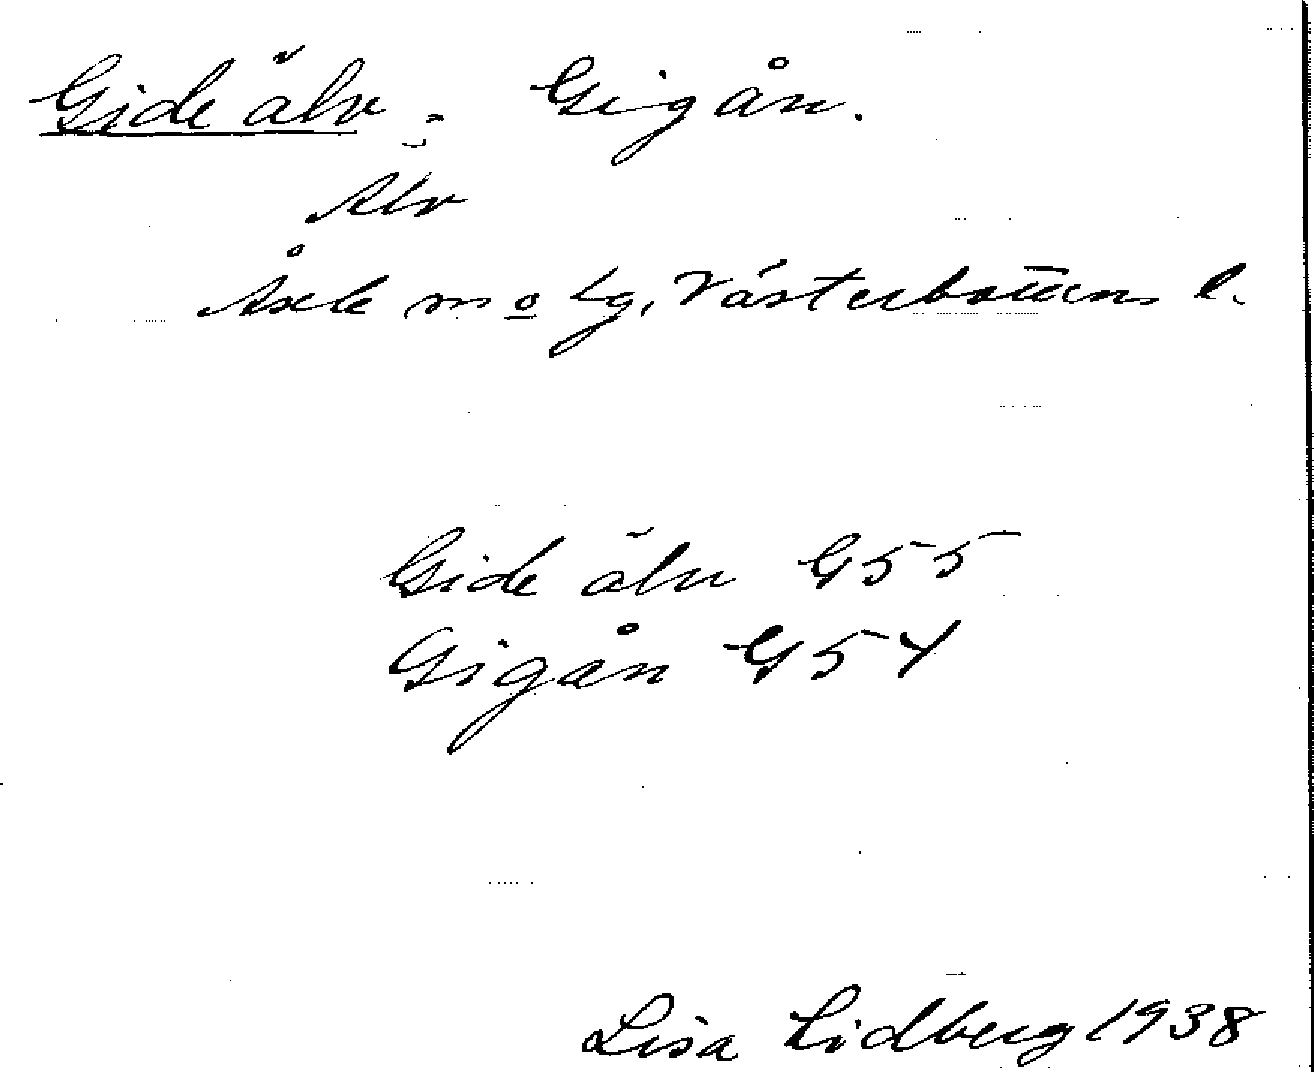 Gide älv - Gigån.
Älv
Åsele m o lg, Västerbottens l.
Gide älv G55
Gigån G54
Lisa Lidberg 1938